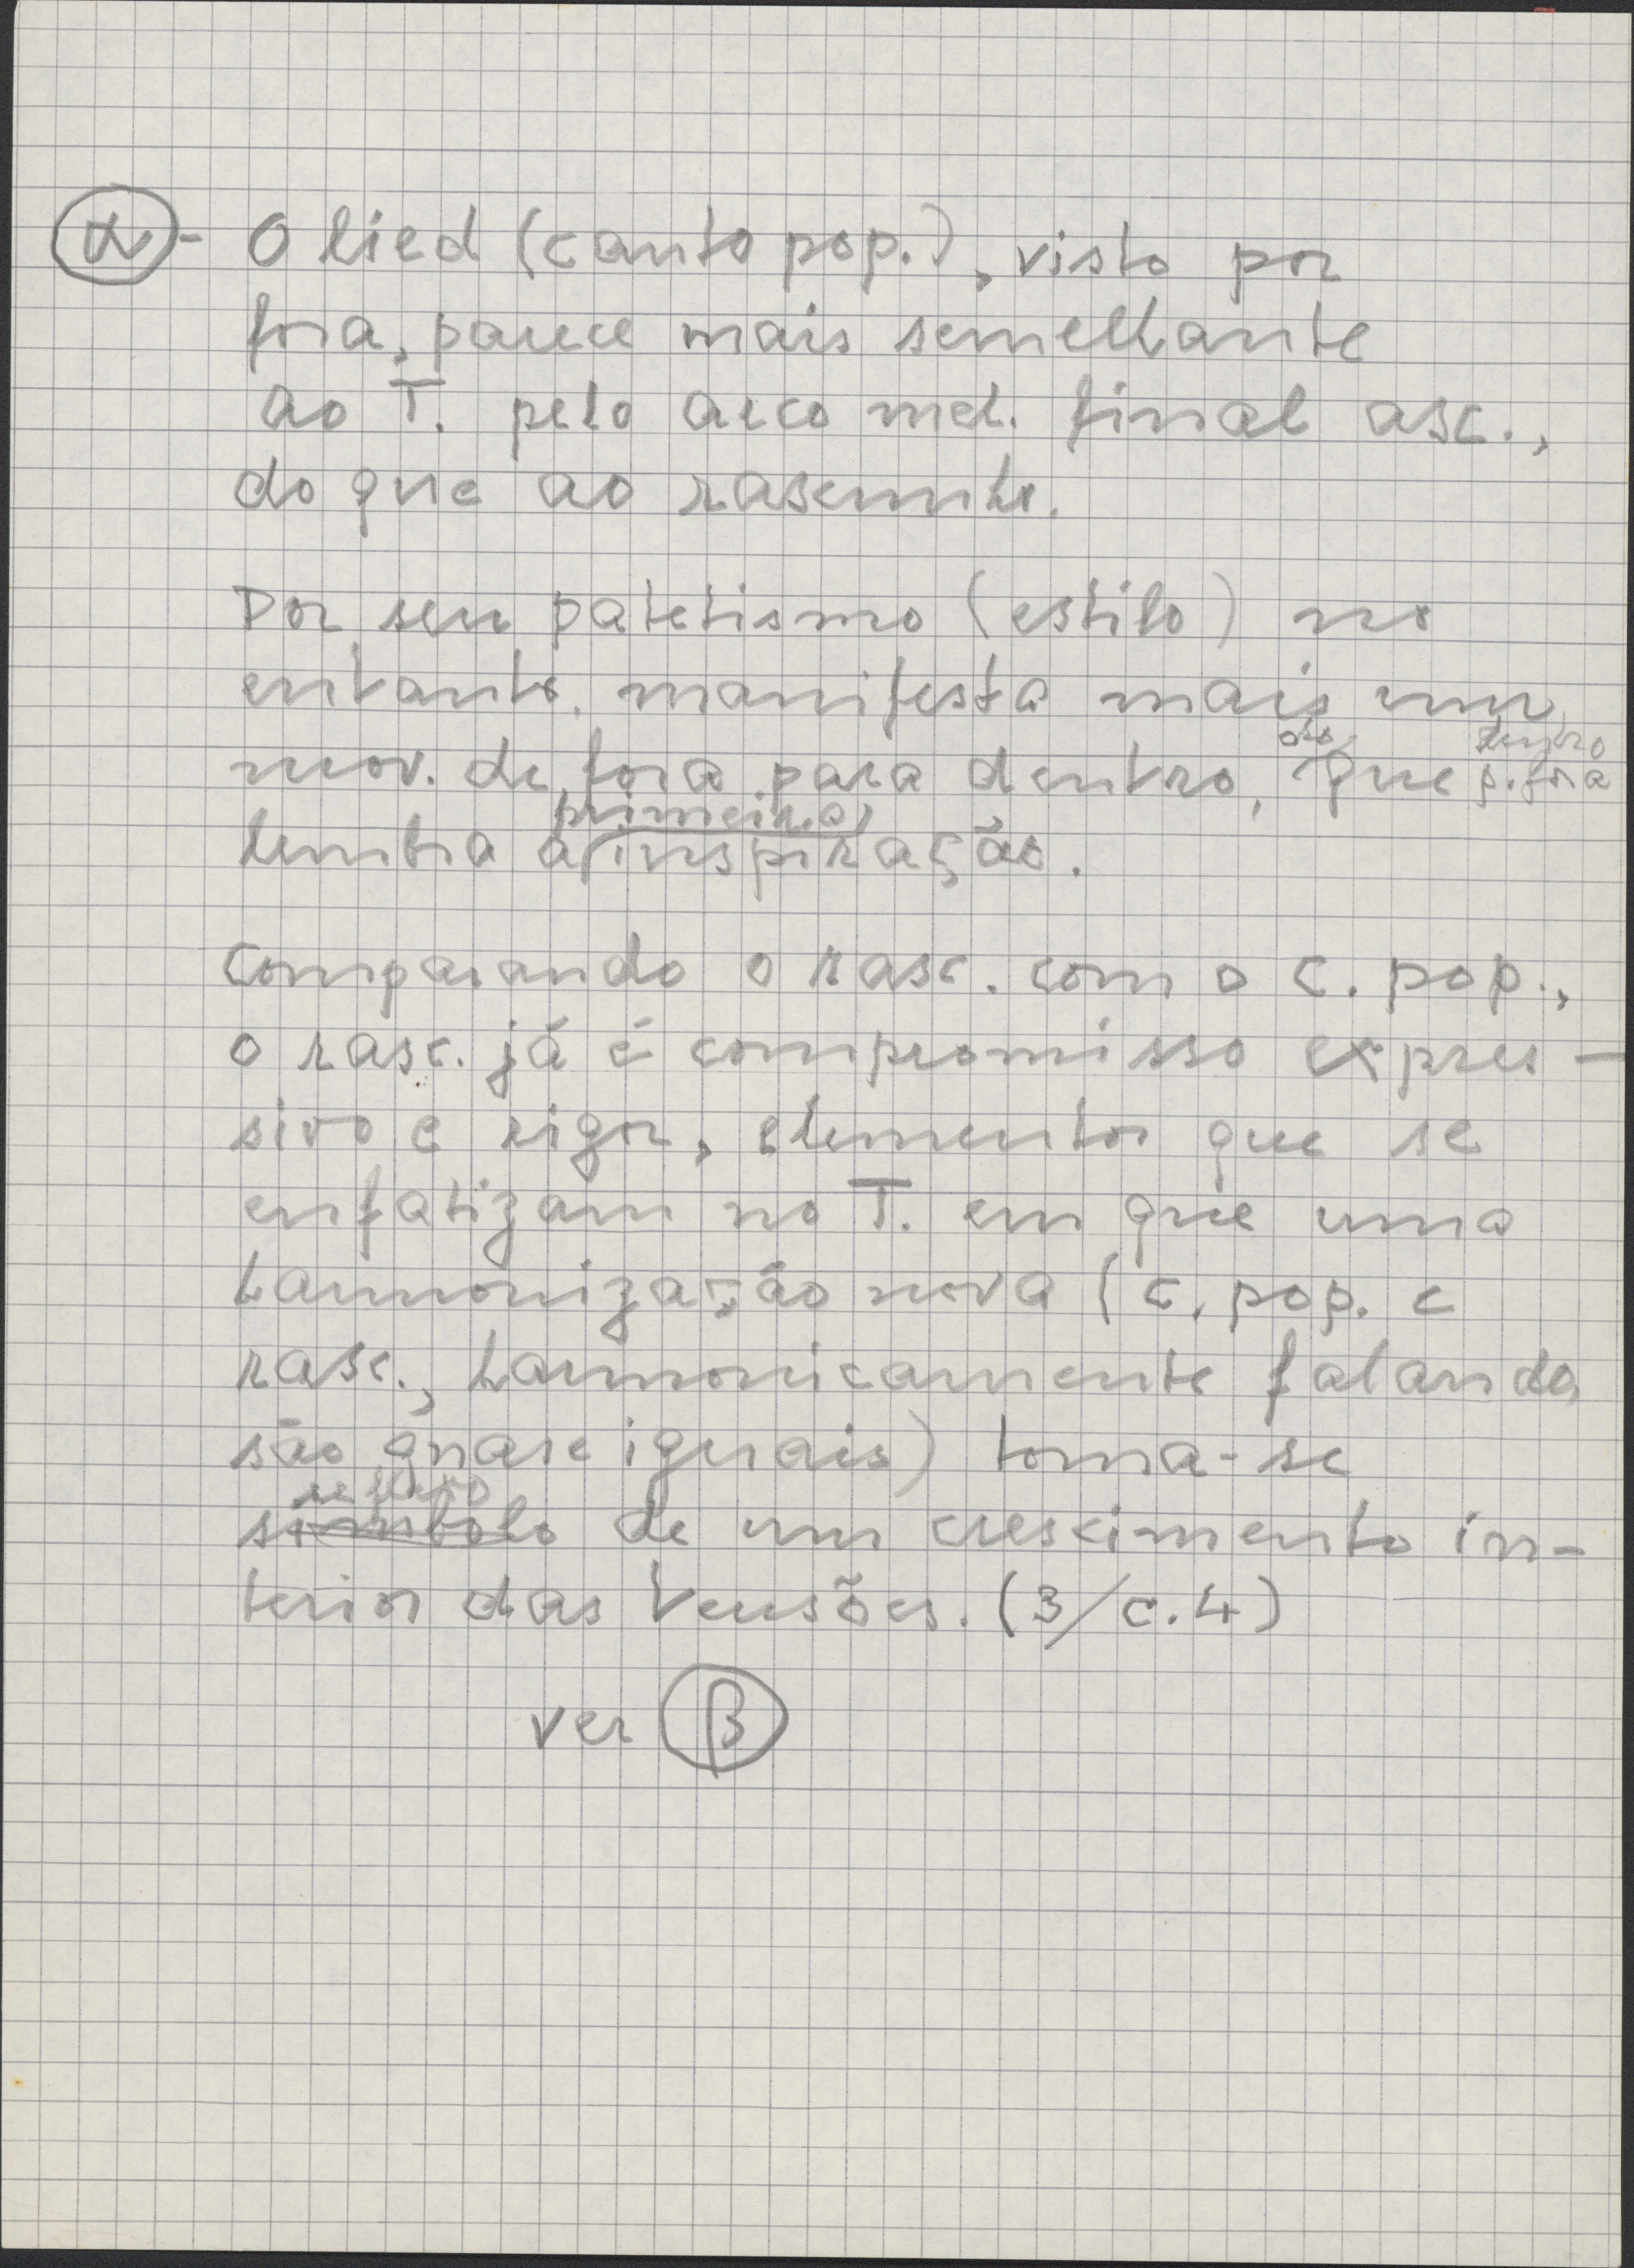 α - O lied (canto pop.), visto por
fora, parece mais semelhante
ao T. pelo arco mel. final asc.,
do que ao rascunho.
Por seu patetismo (estilo) no
entanto, manifesta mais um
mov. de fora para dentro, do que dentro p. fora
lembra a primeira inspiração.
Comparando o rasc. com o c. pop.,
o rasc. já é compromisso expres-
sivo e rigor, elementos que se
enfatizam no T. em que uma
harmonização nova (c. pop. e
rasc., harmonicamente falando,
são quase iguais) torna-se
símbolo de um crescimento in-
terior das tensões. (3/c.4)
ver β